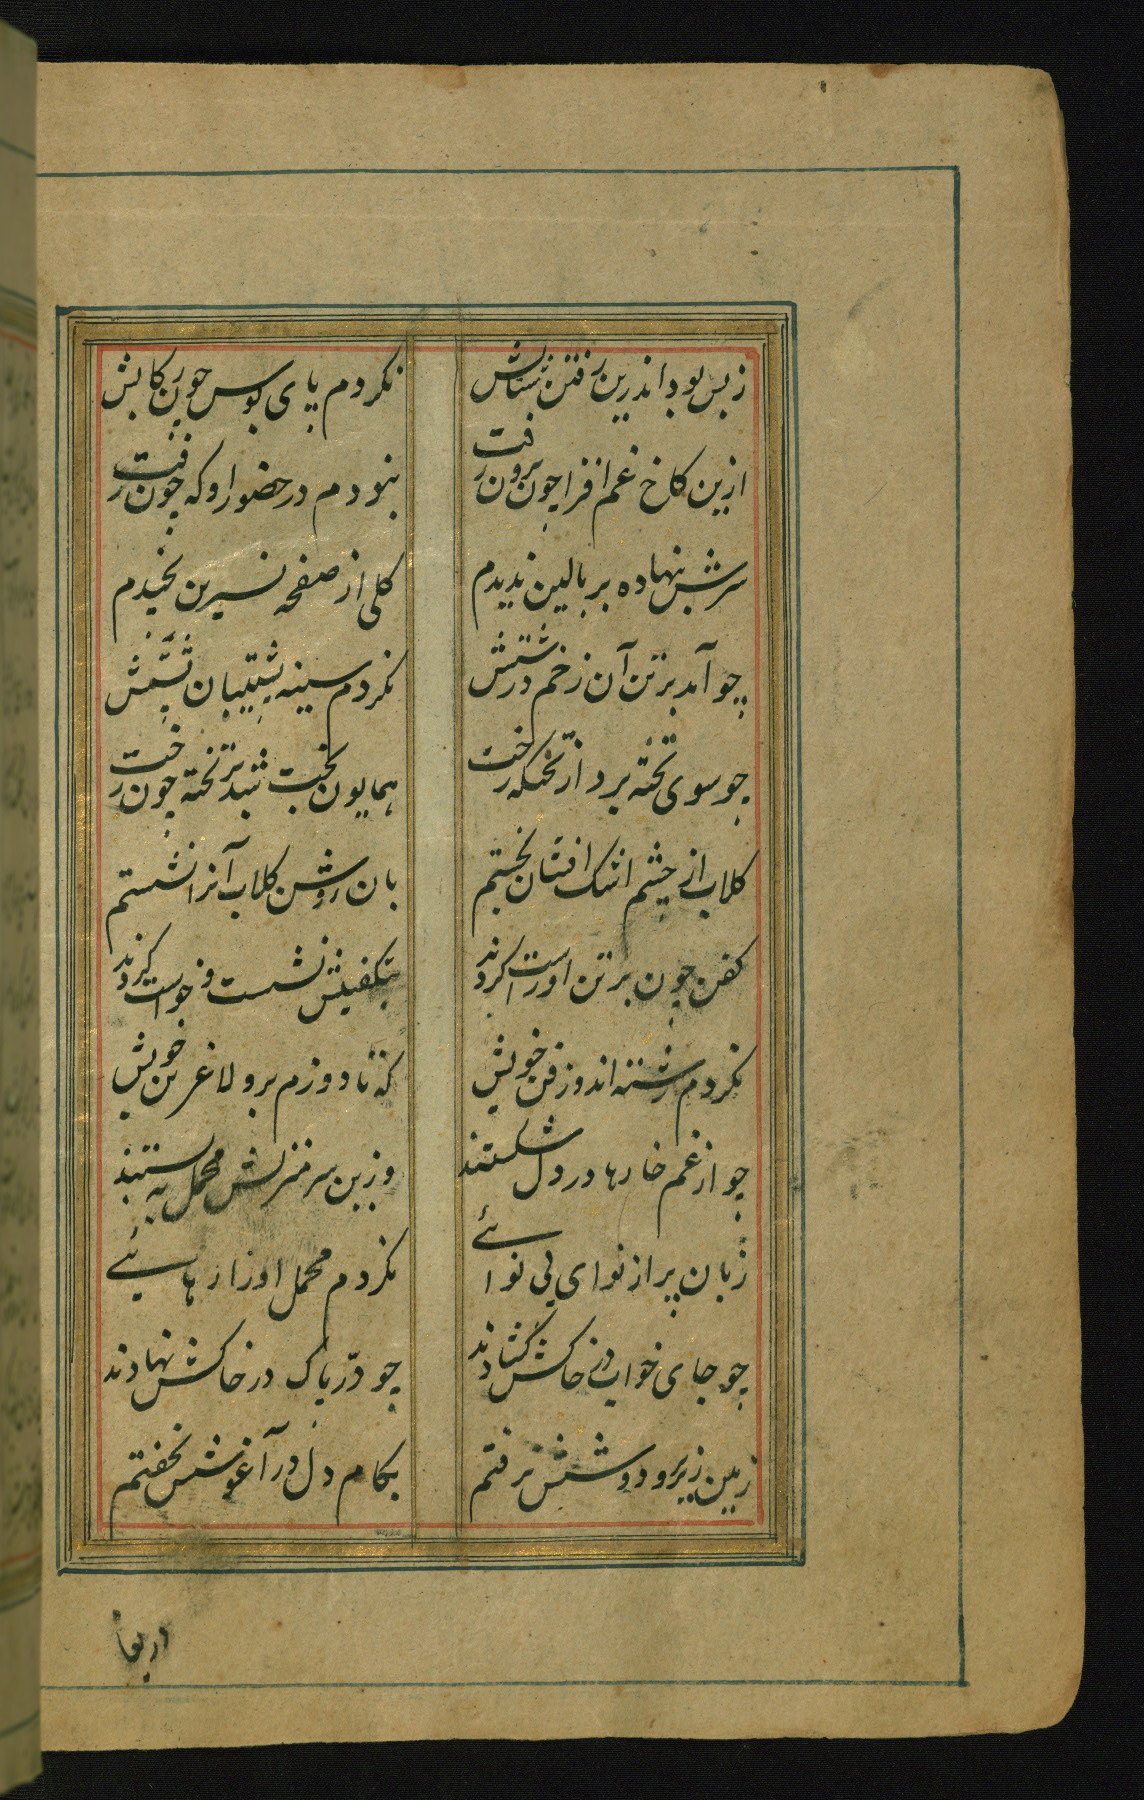 زبس بود اندرین رفتن شتابش نکردم پای بوس چون رکابش
ازین کاخ غم افزا چون برون رفت بنودم در حضور او که چون رفت
سرش بنهاده بر بالین ندیدم کلی از صفحه نسرین نچیدم
چو آمد بر تن آن زخم درشتش نکردم سینه پشتیبان پشتش
چو سوی تخته برد از تختکه رخت همایون تخت شد بر تخته چون رخت
کلاب از چشم اشک افشان نجستم بان روشن کلاب آنرا نشستم
کفن چون بر تن او راست کردند بتکفینش نشست و خواست کردند
نکردم رشته اندوز فن خویش که تا دوزم برو لاغر تن خویش
چو از غم خارها در دل شکستند وزین سر منزلش محمل ببستند
زبان پر از نوای بی نوائے نکردم محمل او را رهائیے
چو جای خواب در خاکش کشادند چو در پاک در خاکش نهادند
زمین زیر و دوشش نرفتم بکام دل در آغوشش نخفتم
دریغا